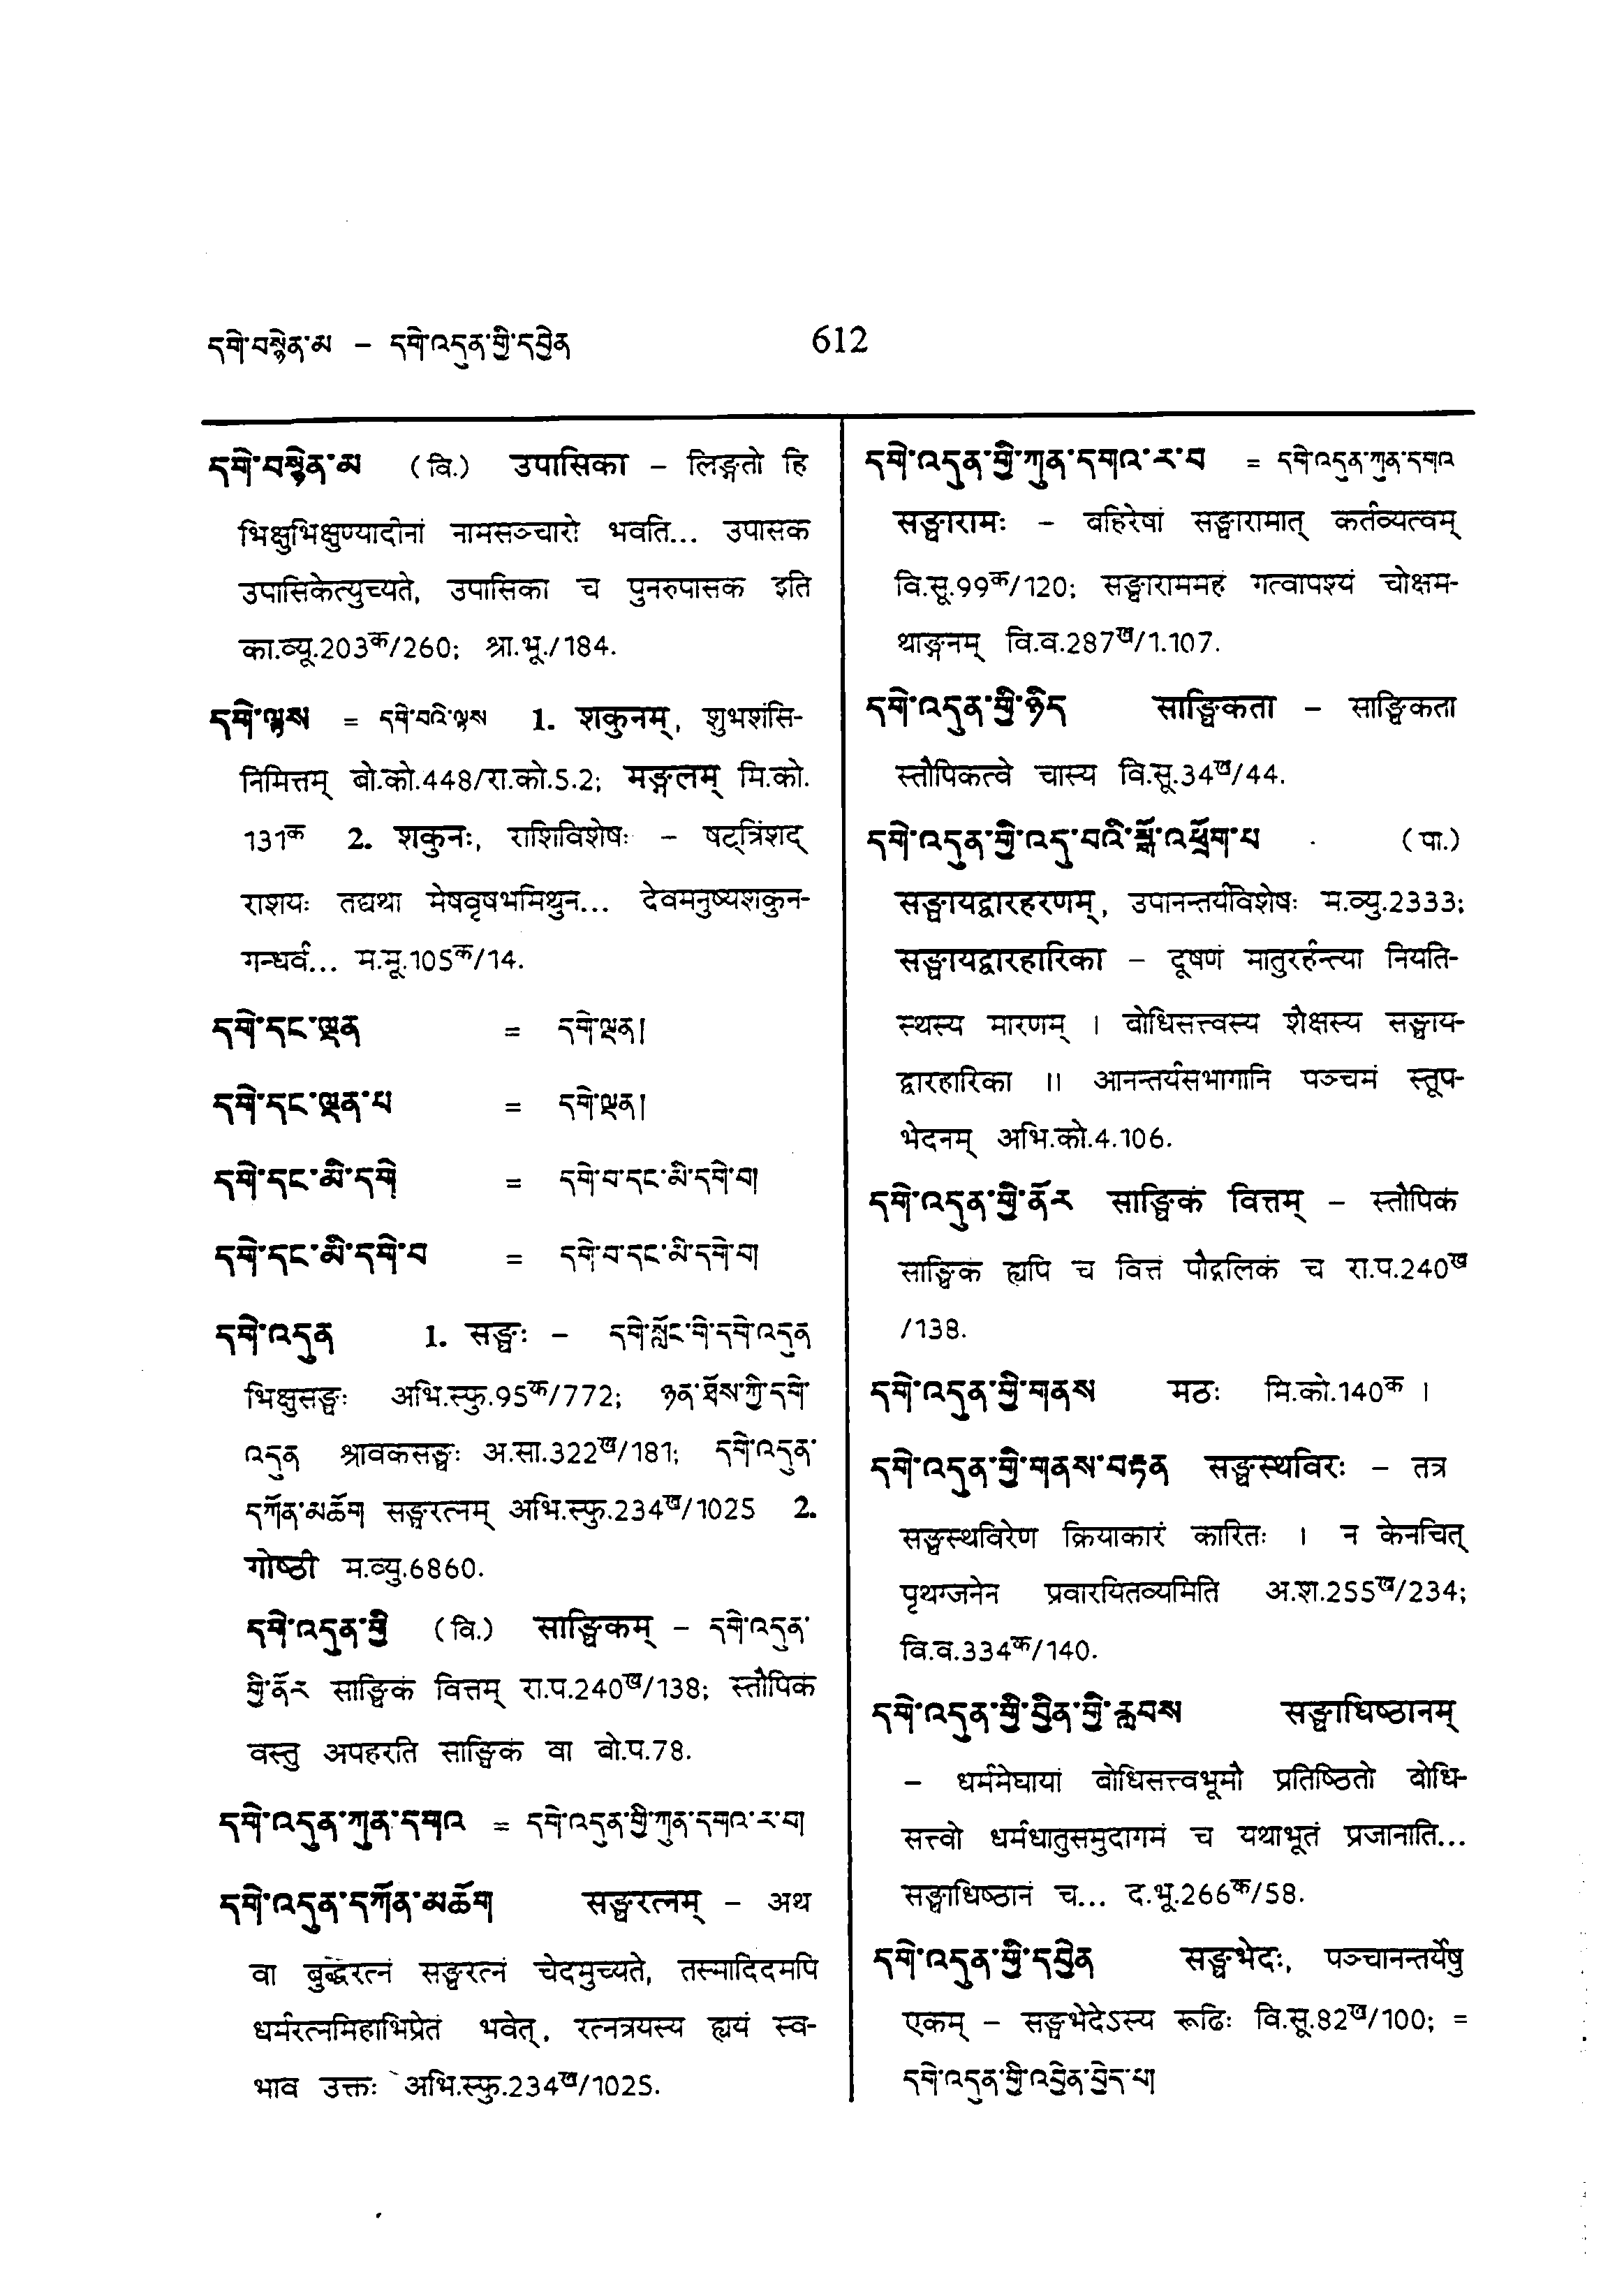 དགེ་བསྙེན་མ – དགེ་འདུན་གྱི་དབྱེན
612
དགེ་བསྙེན་མ (वि.) उपासिका – लिङ्गतो हि
भिक्षुभिक्षुण्यादीनां नामसञ्चारो भवति... उपासक
उपासिकेत्युच्यते, उपासिका च पुनरुपासक इति
का.व्यू.203क/260; श्रा.भू./184.
དགེ་ལྟས = དགེ་བའི་ལྟས 1. शकुनम्, शुभशंसि-
निमित्तम् बो.को.448/रा.को.5.2; मङ्गलम् मि.को.
131क 2. शकुनः, राशिविशेषः – षट्त्रिंशद्
राशयः तद्यथा मेषवृषभमिथुन... देवमनुष्यशकुन-
गन्धर्व... म.मू.105क/14.
དགེ་དང་ལྡན = དགེ་ལྡན།
དགེ་དང་ལྡན་པ = དགེ་ལྡན།
དགེ་དང་མི་དགེ = དགེ་བ་དང་མི་དགེ་བ།
དགེ་དང་མི་དགེ་བ = དགེ་བ་དང་མི་དགེ་བ།
དགེ་འདུན 1. सङ्घः – དགེ་སློང་གི་དགེ་འདུན
भिक्षुसङ्घः अभि.स्फु.95क/772; ཉན་ཐོས་ཀྱི་དགེ་
འདུན श्रावकसङ्घः अ.सा.322ख/181; དགེ་འདུན་
དཀོན་མཆོག सङ्घरत्नम् अभि.स्फु.234ख/1025 2.
गोष्ठी म.व्यु.6860.
དགེ་འདུན་གྱི (वि.) साङ्घिकम् – དགེ་འདུན་
གྱི་ནོར साङ्घिकं वित्तम् रा.प.240ख/138; स्तौपिकं
वस्तु अपहरति साङ्घिकं वा बो.प.78.
དགེ་འདུན་ཀུན་དགའ = དགེ་འདུན་གྱི་ཀུན་དགའ་ར་བ།
དགེ་འདུན་དཀོན་མཆོག सङ्घरत्नम् – अथ
वा बुद्धरत्नं सङ्घरत्नं चेदमुच्यते, तस्मादिदमपि
धर्मरत्नमिहाभिप्रेतं भवेत्, रत्नत्रयस्य ह्ययं स्व-
भाव उक्तः अभि.स्फु.234ख/1025.
དགེ་འདུན་གྱི་ཀུན་དགའ་ར་བ = དགེ་འདུན་ཀུན་དགའ
सङ्घारामः – बहिरेषां सङ्घारामात् कर्तव्यत्वम्
वि.सू.99क/120; सङ्घाराममहं गत्वापश्यं चोक्षम-
थाङ्गनम् वि.व.287ख/1.107.
དགེ་འདུན་གྱི་ཉིད साङ्घिकता – साङ्घिकता
स्तौपिकत्वे चास्य वि.सू.34ख/44.
དགེ་འདུན་གྱི་འདུ་བའི་སྒོ་འཕྲོག་པ (पा.)
सङ्घायद्वारहरणम्, उपानन्तर्यविशेषः म.व्यु.2333;
सङ्घायद्वारहारिका – दूषणं मातुरर्हन्त्या नियति-
स्थस्य मारणम् । बोधिसत्त्वस्य शैक्षस्य सङ्घाय-
द्वारहारिका ।। आनन्तर्यसभागानि पञ्चमं स्तूप-
भेदनम् अभि.को.4.106.
དགེ་འདུན་གྱི་ནོར साङ्घिकं वित्तम् – स्तौपिकं
साङ्घिकं ह्यपि च वित्तं पौद्गलिकं च रा.प.240ख
/138.
དགེ་འདུན་གྱི་གནས मठः मि.को.140क ।
དགེ་འདུན་གྱི་གནས་བརྟན सङ्घस्थविरः – तत्र
सङ्घस्थविरेण क्रियाकारं कारितः । न केनचित्
पृथग्जनेन प्रवारयितव्यमिति अ.श.255ख/234;
वि.व.334क/140.
དགེ་འདུན་གྱི་བྱིན་གྱི་རླབས सङ्घाधिष्ठानम्
– धर्ममेघायां बोधिसत्त्वभूमौ प्रतिष्ठितो बोधि-
सत्त्वो धर्मधातुसमुदागमं च यथाभूतं प्रजानाति...
सङ्घाधिष्ठानं च... द.भू.266क/58.
དགེ་འདུན་གྱི་དབྱེན सङ्घभेदः, पञ्चानन्तर्येषु
एकम् – सङ्घभेदेऽस्य रूढिः वि.सू.82ख/100; =
དགེ་འདུན་གྱི་འབྱེན་བྱེད་པ།